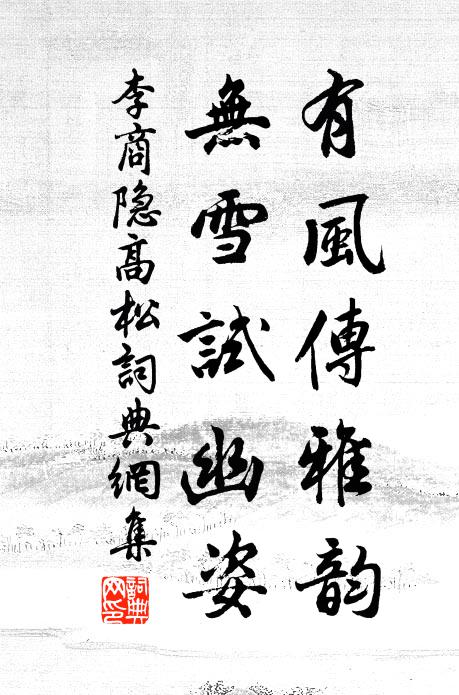 有風傳雅韻
無雪試幽姿
李商隐高松詞典網集
詞典网印